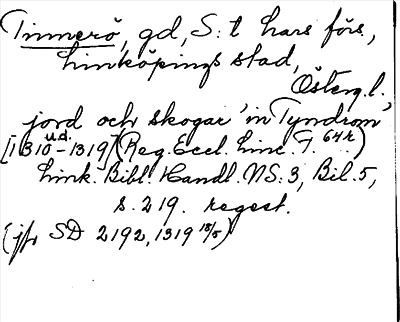 Tinnerö, gd, S:t Lars förs,
Linköpings stad,
Östergl.
jord och skogar 'in Tyndrom'
u.d.
[1310-1319] (Reg. Eccl. Linc. F. 64r)
Link. Bibl. Handl. NS:3, Bil. 5,
s. 219. regest.
(jfr SD 2192, 1319 18/5)